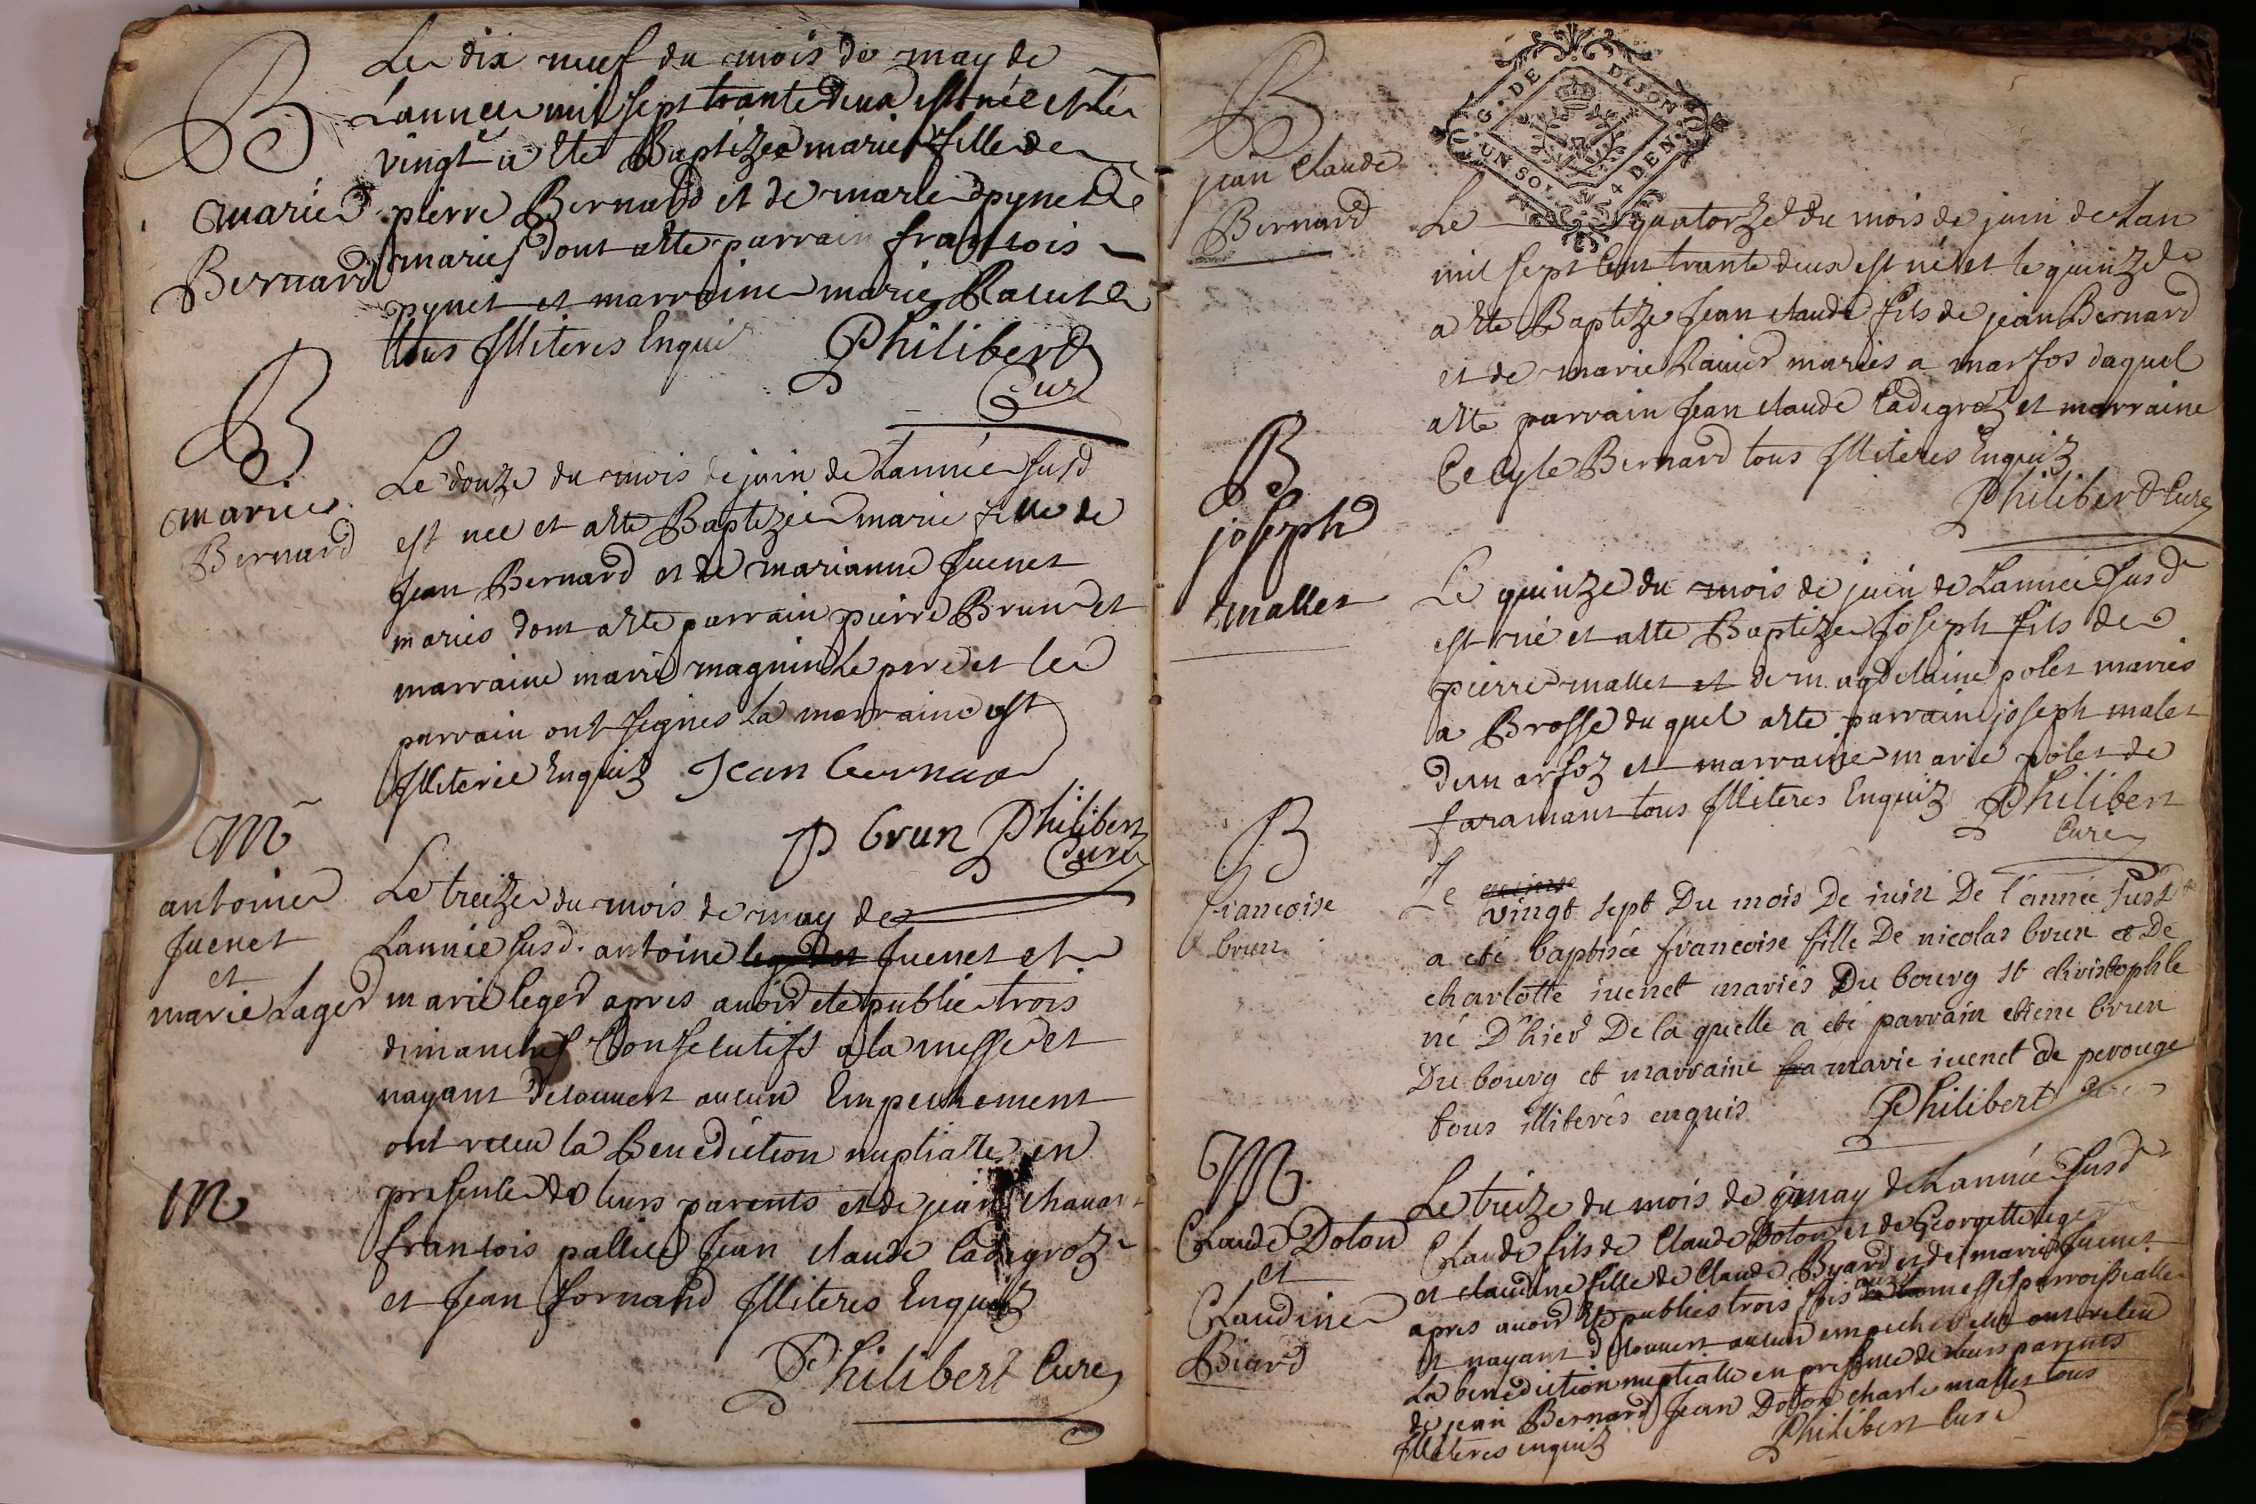 B
marie
Bernard
Le dix neuf du mois de may de
Lannee mil sept trante deux est née et le
vingt a ete Baptizee marie fille de
pierre Bernard et de marie pynet
maries dont a ete parrain francois
pynet et marraine marie
tous illiteres Enquis Philibert
Curé
B
marie
Bernard
Le douze du mois de juin de Lannee susd
est nee et a ete Baptizée marie fille de
Jean Bernard et de marianne Juenet
maries dont a ete parrain pierre Brun et
marraine marie magnin Le pere et le
parrain ont signes La marraine est
illiteree Enquiz Jean bernard
P brun Philibert
Curé
M
antoine
Juenet
et
marie Leger
Le treize du mois de may de
Lannee susd. antoine Juenet et
marie leger apres avoir ete publie trois
dimanches Consecutifs a la messe et
nayant decouvert aucun Empechement
ont receu la Benediction nuptialle en
presence de leurs parents et de jean
francois pallier Jean claude Cadegroz
et Jean fornand illiteres Enquiz
Philibert Curé
M
B
jean Claude
Bernard
G. DE DIJON
UN SOL 4 DEN.
Le quatorze du mois de juin de Lan
mil sept Cent trante deux est né et le quinze
a ete Baptizé Jean claude fils de jean Bernard
et de marie maries a marfos daquel
a ete parrain Jean claude Cadegroz et marraine
Cecyle Bernard tous illiteres Enquiz
Philibert Curé
B
joseph
mallet
Le quinze du mois de juin de Lannee susd
est né et a ete Baptize Joseph fils de
pierre mallet et de magdelaine polet maries
a Brosse du quel a ete parrain joseph malet
de marfoz et marraine marie polet de
faramant tous illiteres Enquiz Philibert
Curé
B
francoise
brun
Le quinze
vingt sept Du mois De iuin De l'année susd
a eté baptisée francoise fille De nicolas brun et De
charlotte iuenet mariés Du bourg st christophle
né D'hier De la quelle a eté parrain etiene brun
Du bourg et marraine fra marie iuenet de perouge
tous illiterés enquis Philibert Curé
M.
Claude Doton
et
Claudine
Biard
Le treize du mois de may de Lannée susd
Claude fils de Claude Doton et de Georgette leger
et claudine fille de Claude Byard et de marie Juenet
apres avoir ete publies trois fois aux messes parroissialle
et nayant decouvert aucun empechement ont receu
La benediction nuptialle en presence de leurs parents
de jean Bernard Jean Doton charle mallet tous
illiteres enquiz Philibert Curé